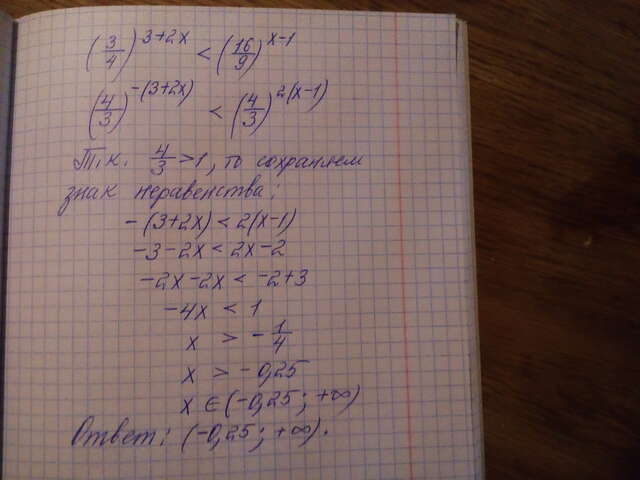 (3/4)^(3+2x) < (16/9)^(x-1)
(4/3)^(-(3+2x)) < (4/3)^(2(x-1))
Т.к. 4/3 > 1, то сохраняем
знак неравенства:
-(3+2x) < 2(x-1)
-3-2x < 2x-2
-2x-2x < -2+3
-4x < 1
x > -1/4
x > -0,25
x ∈ (-0,25; +∞)
Ответ: (-0,25; +∞).